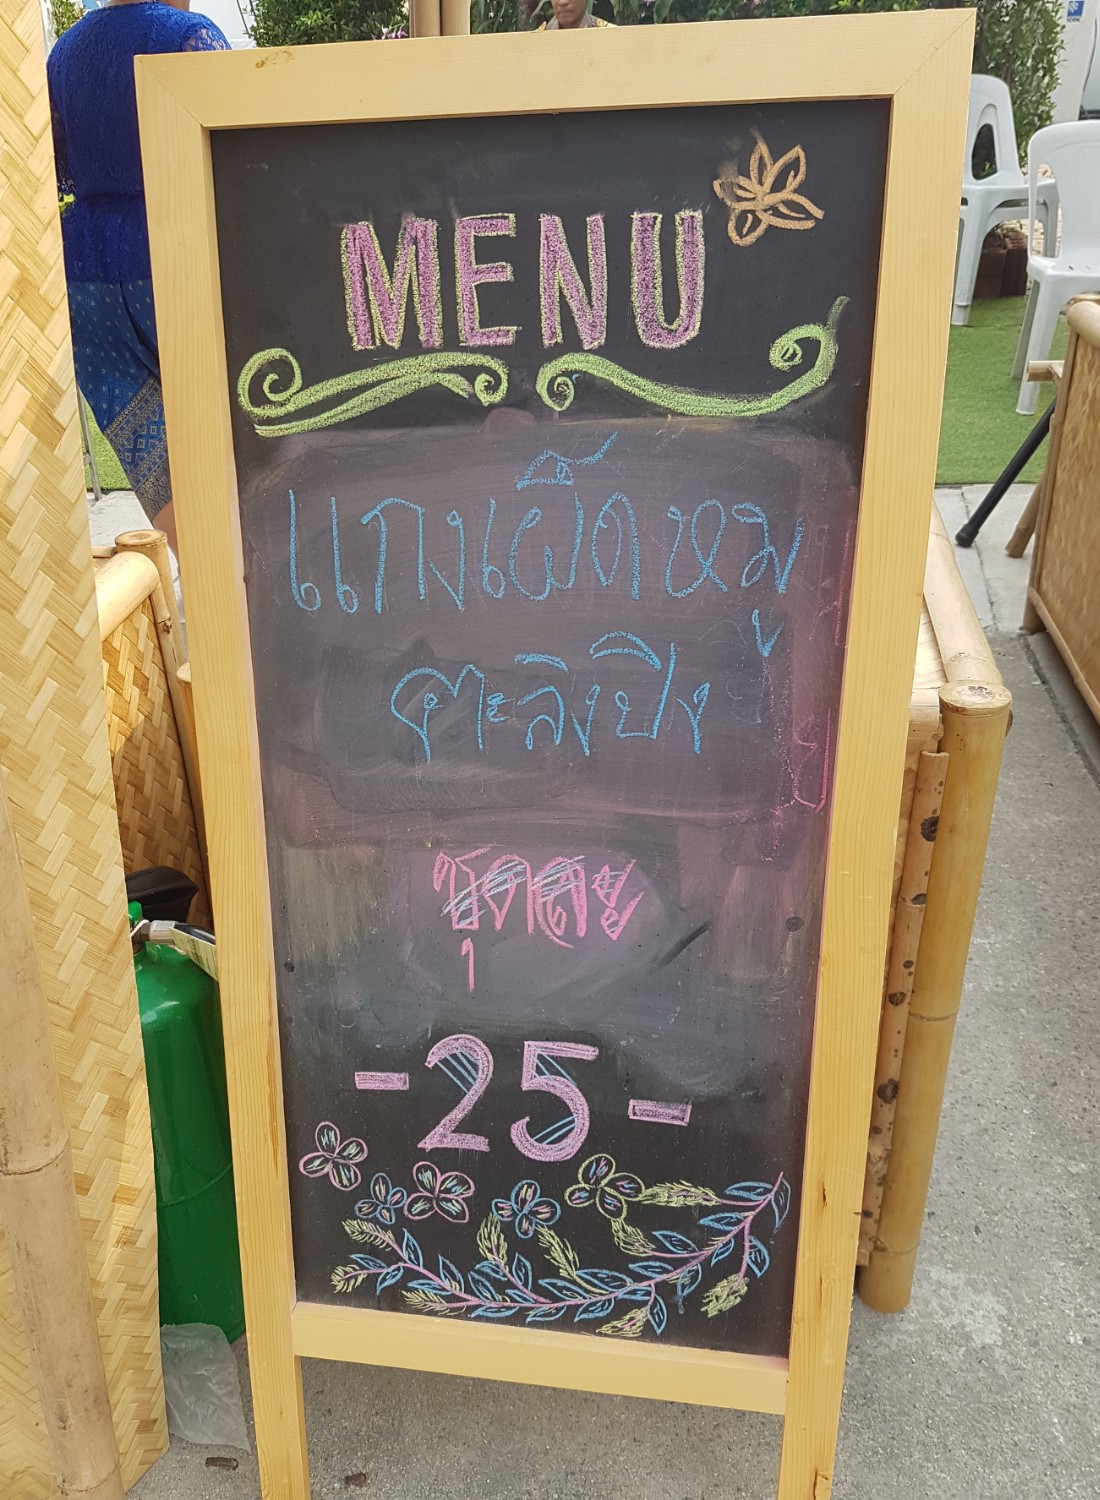 MENU
แกงเผ็ดหมู
ตะลิงปิง
ชุดละ
-25-